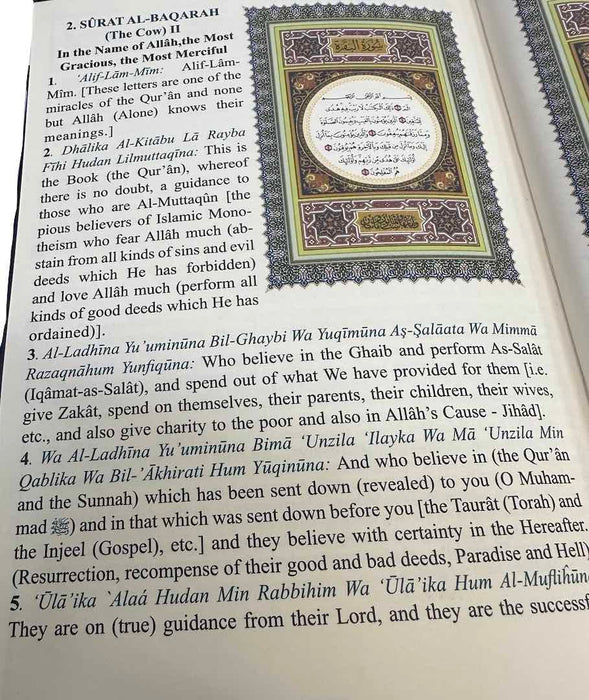 2. SÛRAT AL-BAQARAH
(The Cow) II
In the Name of Allâh,the Most
Gracious, the Most Merciful
1. 'Alif-Lām-Mīm: Alif-Lâm-
Mîm. [These letters are one of the
miracles of the Qur'ân and none
but Allâh (Alone) knows their
meanings.]
2. Dhālika Al-Kitābu Lā Rayba
Fīhi Hudan Lilmuttaqīna: This is
the Book (the Qur'ân), whereof
there is no doubt, a guidance to
those who are Al-Muttaqûn [the
pious believers of Islamic Mono-
theism who fear Allâh much (ab-
stain from all kinds of sins and evil
deeds which He has forbidden)
and love Allâh much (perform all
kinds of good deeds which He has
ordained)].
سورة البقرة
3. Al-Ladhīna Yu'uminūna Bil-Ghaybi Wa Yuqīmūna Aş-Şalāata Wa Mimmā
Razaqnāhum Yunfiqūna: Who believe in the Ghaib and perform As-Salât
(Iqâmat-as-Salât), and spend out of what We have provided for them [i.e.
give Zakât, spend on themselves, their parents, their children, their wives,
etc., and also give charity to the poor and also in Allâh's Cause - Jihâd].
4. Wa Al-Ladhīna Yu'uminūna Bimā 'Unzila 'Ilayka Wa Mā 'Unzila Min
Qablika Wa Bil-'Ākhirati Hum Yūqinūna: And who believe in (the Qur'ân
and the Sunnah) which has been sent down (revealed) to you (O Muham-
mad ﷺ) and in that which was sent down before you [the Taurât (Torah) and
the Injeel (Gospel), etc.] and they believe with certainty in the Hereafter.
(Resurrection, recompense of their good and bad deeds, Paradise and Hell)
5. 'Ūlā'ika `Alaá Hudan Min Rabbihim Wa 'Ūlā'ika Hum Al-Mufliĥūn
They are on (true) guidance from their Lord, and they are the successf